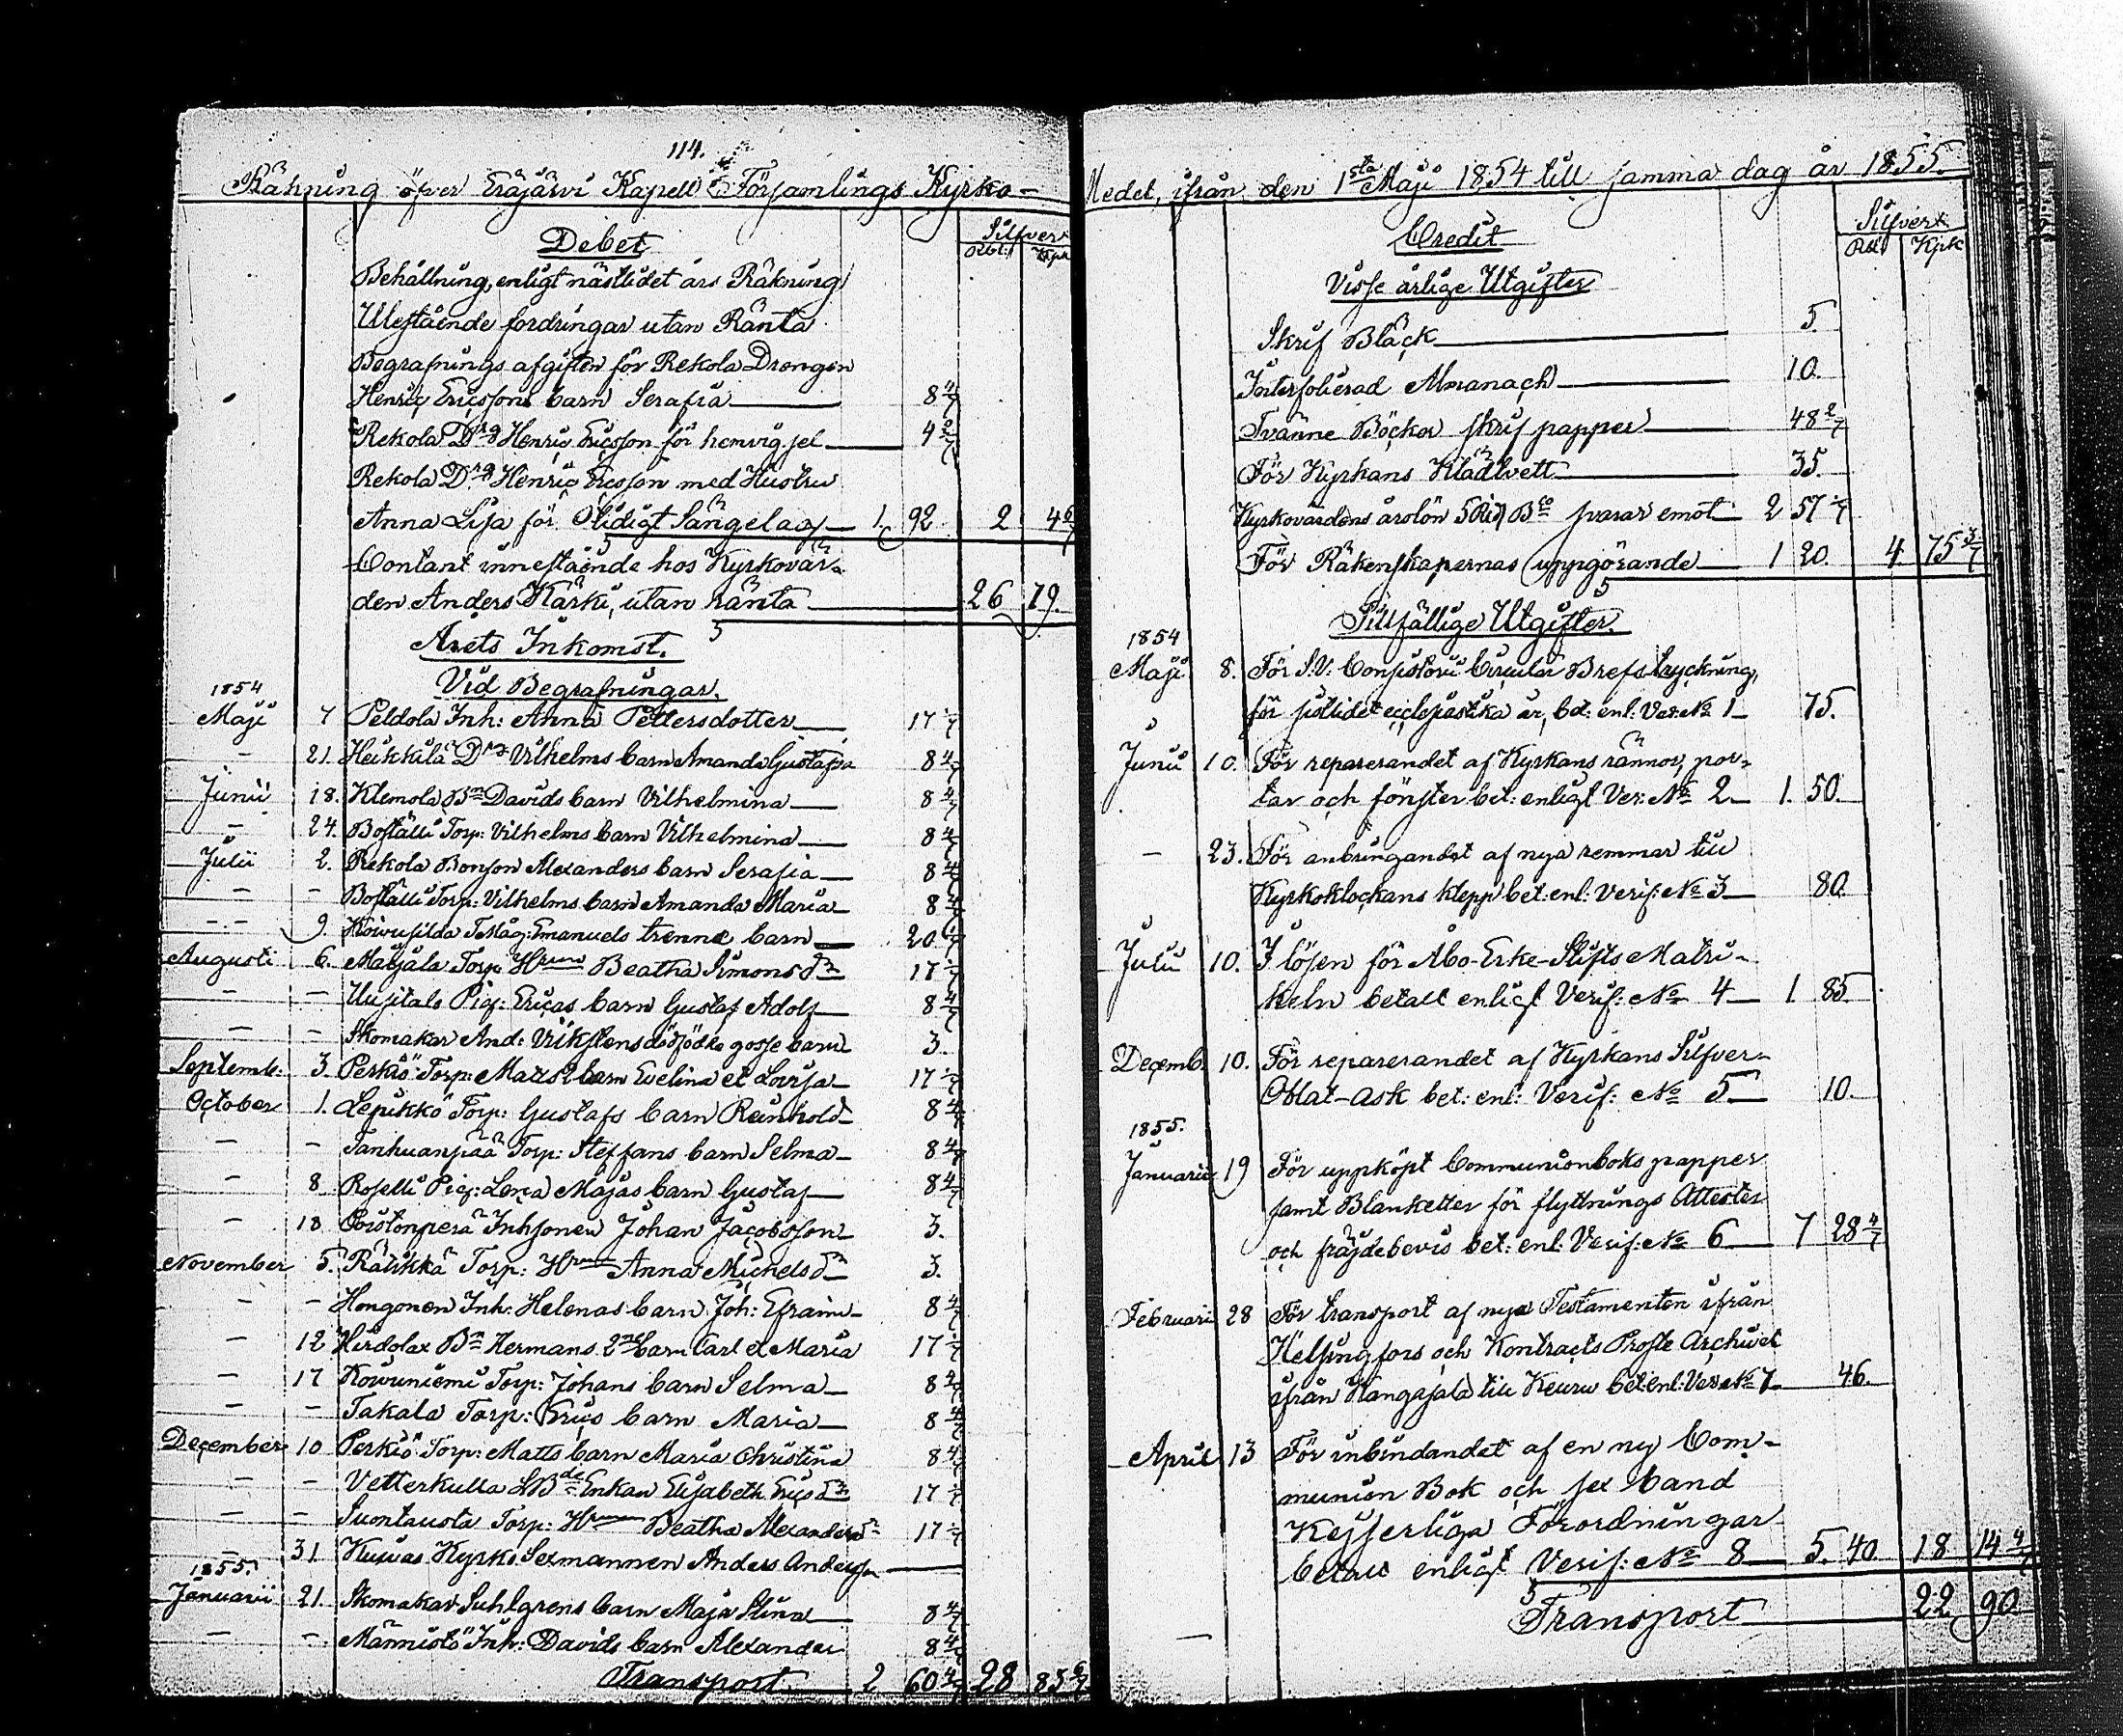 114.
Räkning öfver Eräjärvi Kapell Församlings Kyrko-
Debet
Silfver
Rbl: Kpk
Behållning, enligt nästlidet års Räkning
Utestående fordringar utan Ränta
Begrafnings afgiften för Rekola Drengen
Henric Ericssons barn Serafia — 8 4/7
Rekola Drg Henric Ericsson för hemvigsel — 4 2/7
Rekola Drg Henric Ericsson med Hustru
Anna Lisa för otidigt Sängelag — 1. 92 2 4 6/7
Contant innestående hos Kyrkovär-
den Anders Kärki, utan ränta — 26 79.
Årets Inkomst.
Vid Begrafningar.
1854
Maji 7 Peldola Inh: Anna Pettersdotter — 17 1/7
– 21. Heikkilä Drg Vilhelms barn Amanda Gustafva 8 4/7
Junii 18. Klemola Bn Davids barn Vilhelmina — 8 4/7
– 24. Boställi Torp: Vilhelms barn Vilhelmina — 8 4/7
Julii 2. Rekola Bonson Alexanders barn Serafia — 8 4/7
– – Boställi Torp: Vilhelms barn Amanda Maria — 8 4/7
– – 9. Koivusilda Emanuels trenne barn — 20 4/7
Augusti 6. Marjala Torp Hrun Beatha Simonsdr 17 1/7
– – Uusitalo Pig: Ericas barn Gustaf Adolf — 8 4/7
– – Skomakar And: Vikstens dödfödde gosse barn — 3.
Septemb: 3. Perkiö Torp: Matts 2 barn Evelina et Lovisa — 17 1/7
October 1. Lepikkö Torp: Gustafs barn Reinhold — 8 4/7
– – Tanhuanpää Torp: Steffans barn Selma — 8 4/7
– 8 Roselli Pig: Lena Majas barn Gustaf — 8 4/7
– 18 Inhsonen Johan Jacobsson — 3.
November 5. Rälikkä Torp: Hrun Anna Michelsdr 3.
– – Hongonen Inh: Helenas barn Joh: Efraim — 8 4/7
– 12 Hirdolax Bn Hermans 2ne barn Carl et Maria 17 1/7
– 17 Koivuniemi Torp: Johans barn Selma — 8 4/7
– – Takala Torp: Erics barn Maria — 8 4/7
December 10 Perkiö Torp: Matts barn Maria Christina 8 4/7
– – Vetterkulla Enkan Elisabeth Ericsdr 17 1/7
– – Suontausta Torp: Hrun Beatha Alexandersdr 17 1/7
– 31. Kuivas Kyrko Sexmannen Anders Andersson —
1855.
Januarii 21. Skomakar Suhlgrens barn Maja Stina — 8 4/7
– – Männistö Inh: Davids barn Alexander 8 4/7
Transport — 2 60 4/7 28 83 6/7
Medel, ifrån den 1sta Maji 1854 till samma dag år 1855.
Credit
Silfver
Rbl Kpk
Visse årlige Utgifter
Skrif Bläck — 5
Interfolierad Almanach — 10.
Tvänne Böcker skrif papper — 48 2/7
För Kyrkans Klädtvett — 35.
Kyrkovärdens årslön 5 Rd Bco svarar emot 2 57 1/7
För Räkenskapernas uppgörande — 1 20. 4. 75 3/7
Tillfällige Utgifter.
1854
Maji 8. För S.V. Consistorii Circulär Brefs tryckning,
för sistlidet ecclesiastika år, bet: enl: Ver: No 1 — 75.
Junii 10. För reparerandet af Kyrkans rännor, por-
tar och fönster bet: enligt Ver: No 2 — 1. 50.
– 23. För anbringandet af nya remmar till
Kyrkoklockans klepp bet: enl: Verif: No 3 — 80.
Julii 10. I lösen för Åbo-Erke-Stifts Matri-
keln betalt enligt Verif: No 4 — 1 85
Decemb. 10. För reparerandet af Kyrkans Silfver-
Oblat-ask bet: enl: Verif: No 5 — 10.
1855.
Januarii 19 För uppköpt Communionboks papper
samt Blanketter för flyttnings Attester
och fräjdebevis bet: enl: Verif: No 6 — 7 28 4/7
Februarii 28 För transport af nya Testamenten ifrån
Helsingfors och Kontracts Proste Archivet
ifrån Kangasala till Keuru bet: enl: Ver: No 7. — 46.
April 13 För inbindandet af en ny Com-
munion Bok och sex band
Kejserliga Förordningar
betalt enligt Verif: No 8 — 5. 40. 18 14 4/7
Transport — 22 90